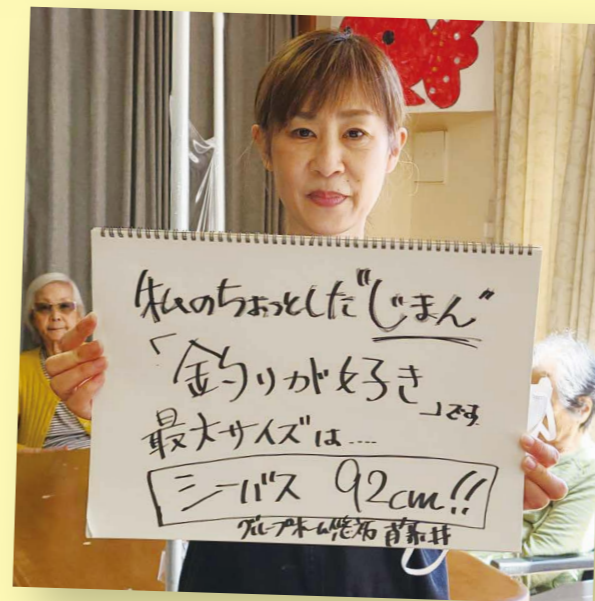 私のちょっとした“じまん”
「釣りが好き」です
最大サイズは....
シーバス 92cm!!
グループホーム